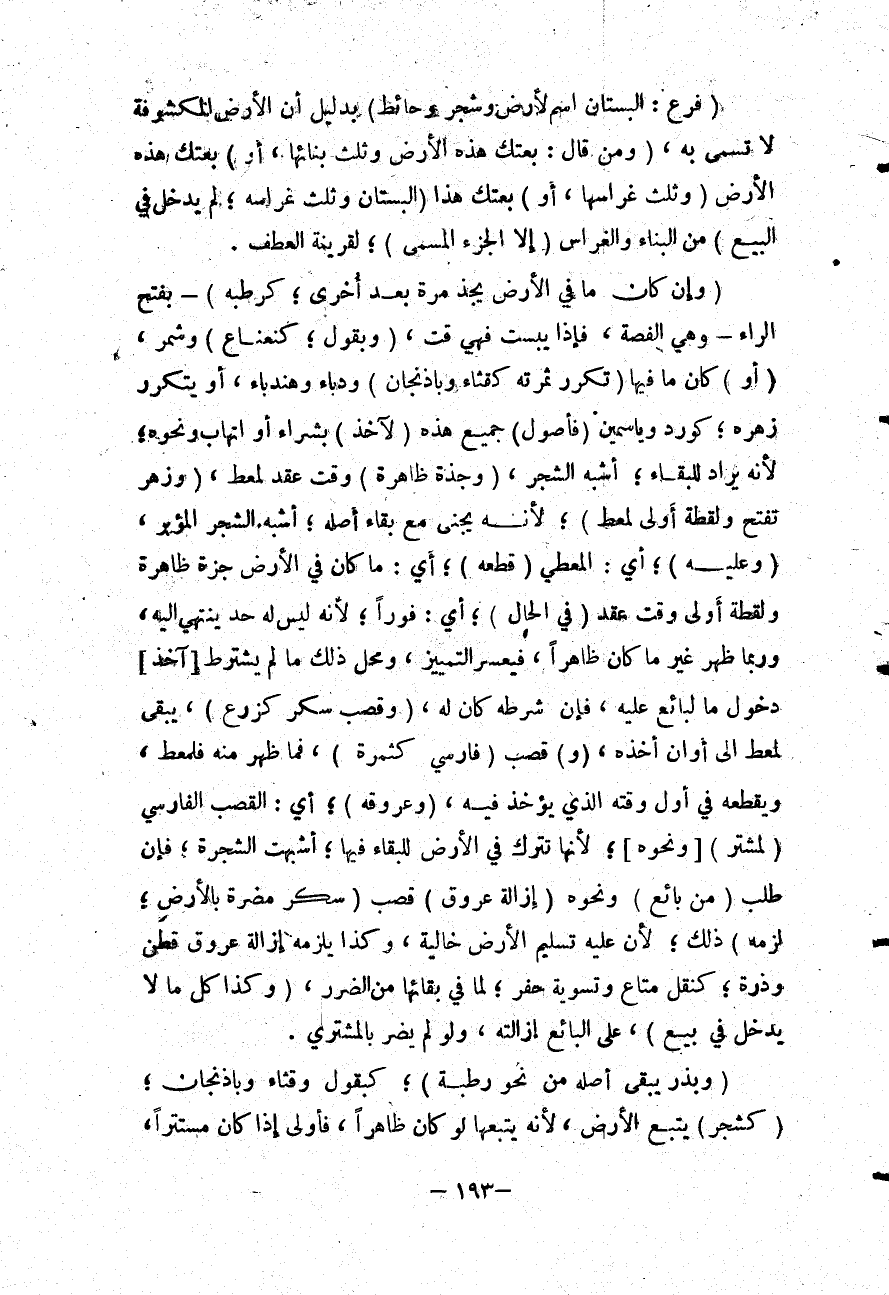 ( فرع : البستان اسم لأرض وشجر وحائط) بدليل أن الأرض المكشوفة
لا تسمى به ، ( ومن قال : بعتك هذه الأرض وثلث بنائها ، أو ) بعتك هذه
الأرض ( وثلث غراسها ، أو ) بعتك هذا (البستان وثلث غراسه ؛ لم يدخل في
البيع ) من البناء والغراس ( إلا الجزء المسمى ) ؛ لقرينة العطف .
( وإن كان ما في الأرض يجذ مرة بعد أُخرى ؛ كرطبه ) – بفتح
الراء – وهي الفصة ، فإذا يبست فهي قت ، ( وبقول ؛ كنعناع ) وشمر ،
( أو ) كان ما فيها ( تكرر ثمرته كقثاء وباذنجان ) ودباء وهندباء ، أو يتكرر
زهره ؛ كورد وياسمين (فأصول) جميع هذه ( لآخذ ) بشراء أو اتهاب ونحوه ؛
لأنه يراد للبقاء ؛ أشبه الشجر ، ( وجذة ظاهرة ) وقت عقد لمعط ، ( وزهر
تفتح ولقطة أولى لمعط ) ؛ لأنه يجنى مع بقاء أصله ؛ أشبه الشجر المؤبر ،
( وعليه ) ؛ أي : المعطي ( قطعه ) ؛ أي : ما كان في الأرض جزة ظاهرة
ولقطة أولى وقت عقد ( في الحال ) ؛ أي : فوراً ؛ لأنه ليس له حد ينتهي اليه ،
وربما ظهر غير ما كان ظاهراً ، فيعسر التمييز ، ومحل ذلك ما لم يشترط [آخذ]
دخول ما لبائع عليه ، فإن شرطه كان له ، ( وقصب سكر كزرع ) ، يبقى
لمعط الى أوان أخذه ، (و) قصب ( فارسي كثمرة ) ، فما ظهر منه فلمعط ،
ويقطعه في أول وقته الذي يؤخذ فيه ، (وعروقه ) ؛ أي : القصب الفارسي
( لمشتر ) [ونحوه] ؛ لأنها تترك في الأرض للبقاء فيها ؛ أشبهت الشجرة ؛ فإن
طلب ( من بائع ) ونحوه ( إزالة عروق ) قصب ( سكر مضرة بالأرض ؛
لزمه ) ذلك ؛ لأن عليه تسليم الأرض خالية ، وكذا يلزمه إزالة عروق قطن
وذرة ؛ كنقل متاع وتسوية حفر ؛ لما في بقائها من الضرر ، ( وكذا كل ما لا
يدخل في بيع ) ، على البائع إزالته ، ولو لم يضر بالمشتري .
( وبذر يبقى أصله من نحو رطبة ) ؛ كبقول وقثاء وباذنجان ؛
( كشجر) يتبع الأرض ، لأنه يتبعها لو كان ظاهراً ، فأولى إذا كان مستتراً ،
– ١٩٣ –